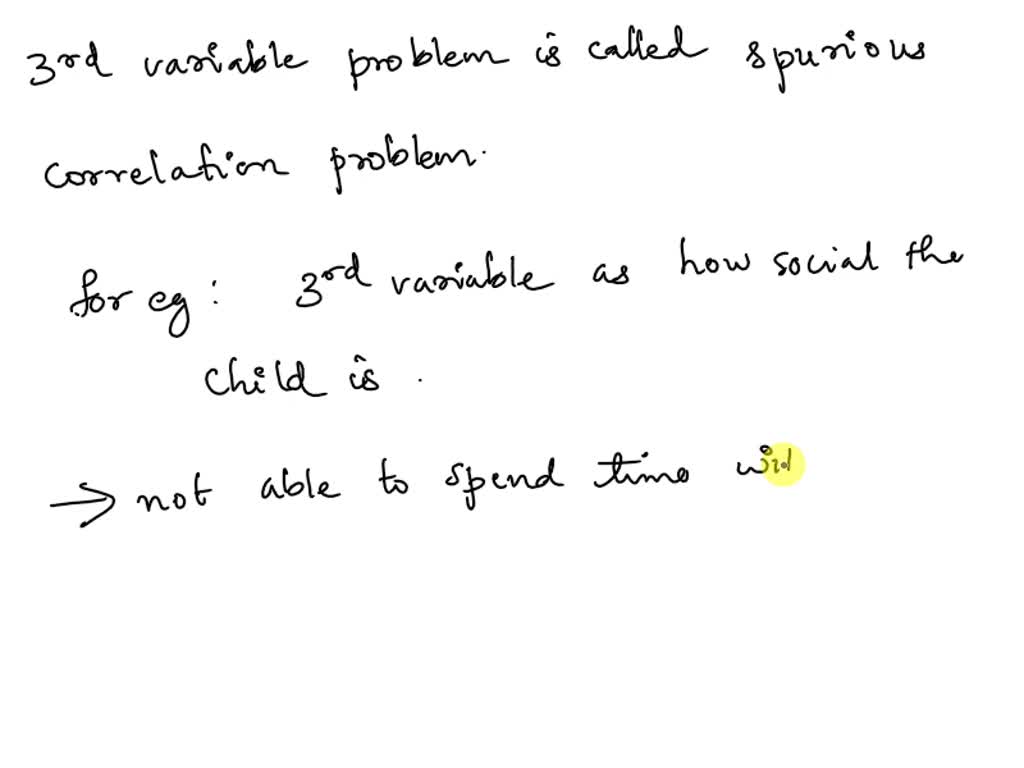 3rd variable problem is called spurious
correlation problem.
for eg: 3rd variable as how social the
child is.
→ not able to spend time